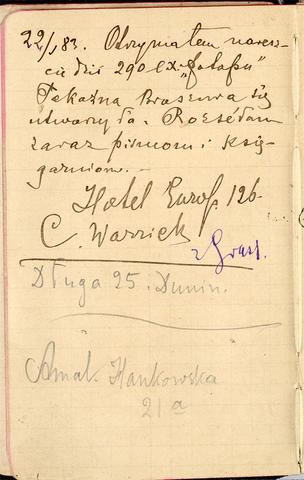 22/I 83. Otrzymałem naresz-
cie dziś 290 ex. „
Pokaźna Broszura się
utworzyła. Rozsełam
zaraz pismom i księ-
garniom.
Hotel Europ. 126.
C. Warzick
z
Długa 25. Dunin.
Amal. Hankowska
21 a